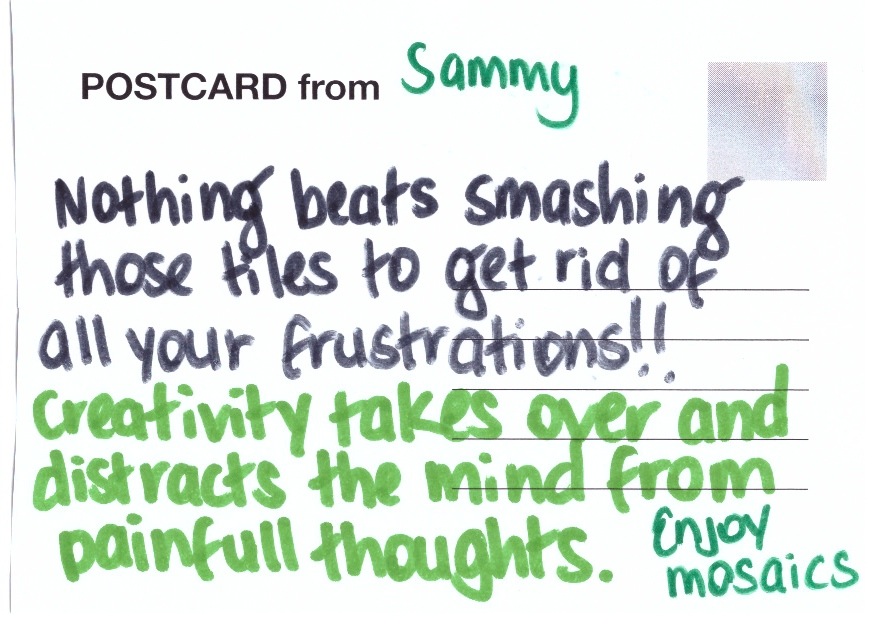 POSTCARD from Sammy
Nothing beats smashing
those tiles to get rid of
all your frustrations!!
Creativity takes over and
distracts the mind from
painfull thoughts.
Enjoy
mosaics